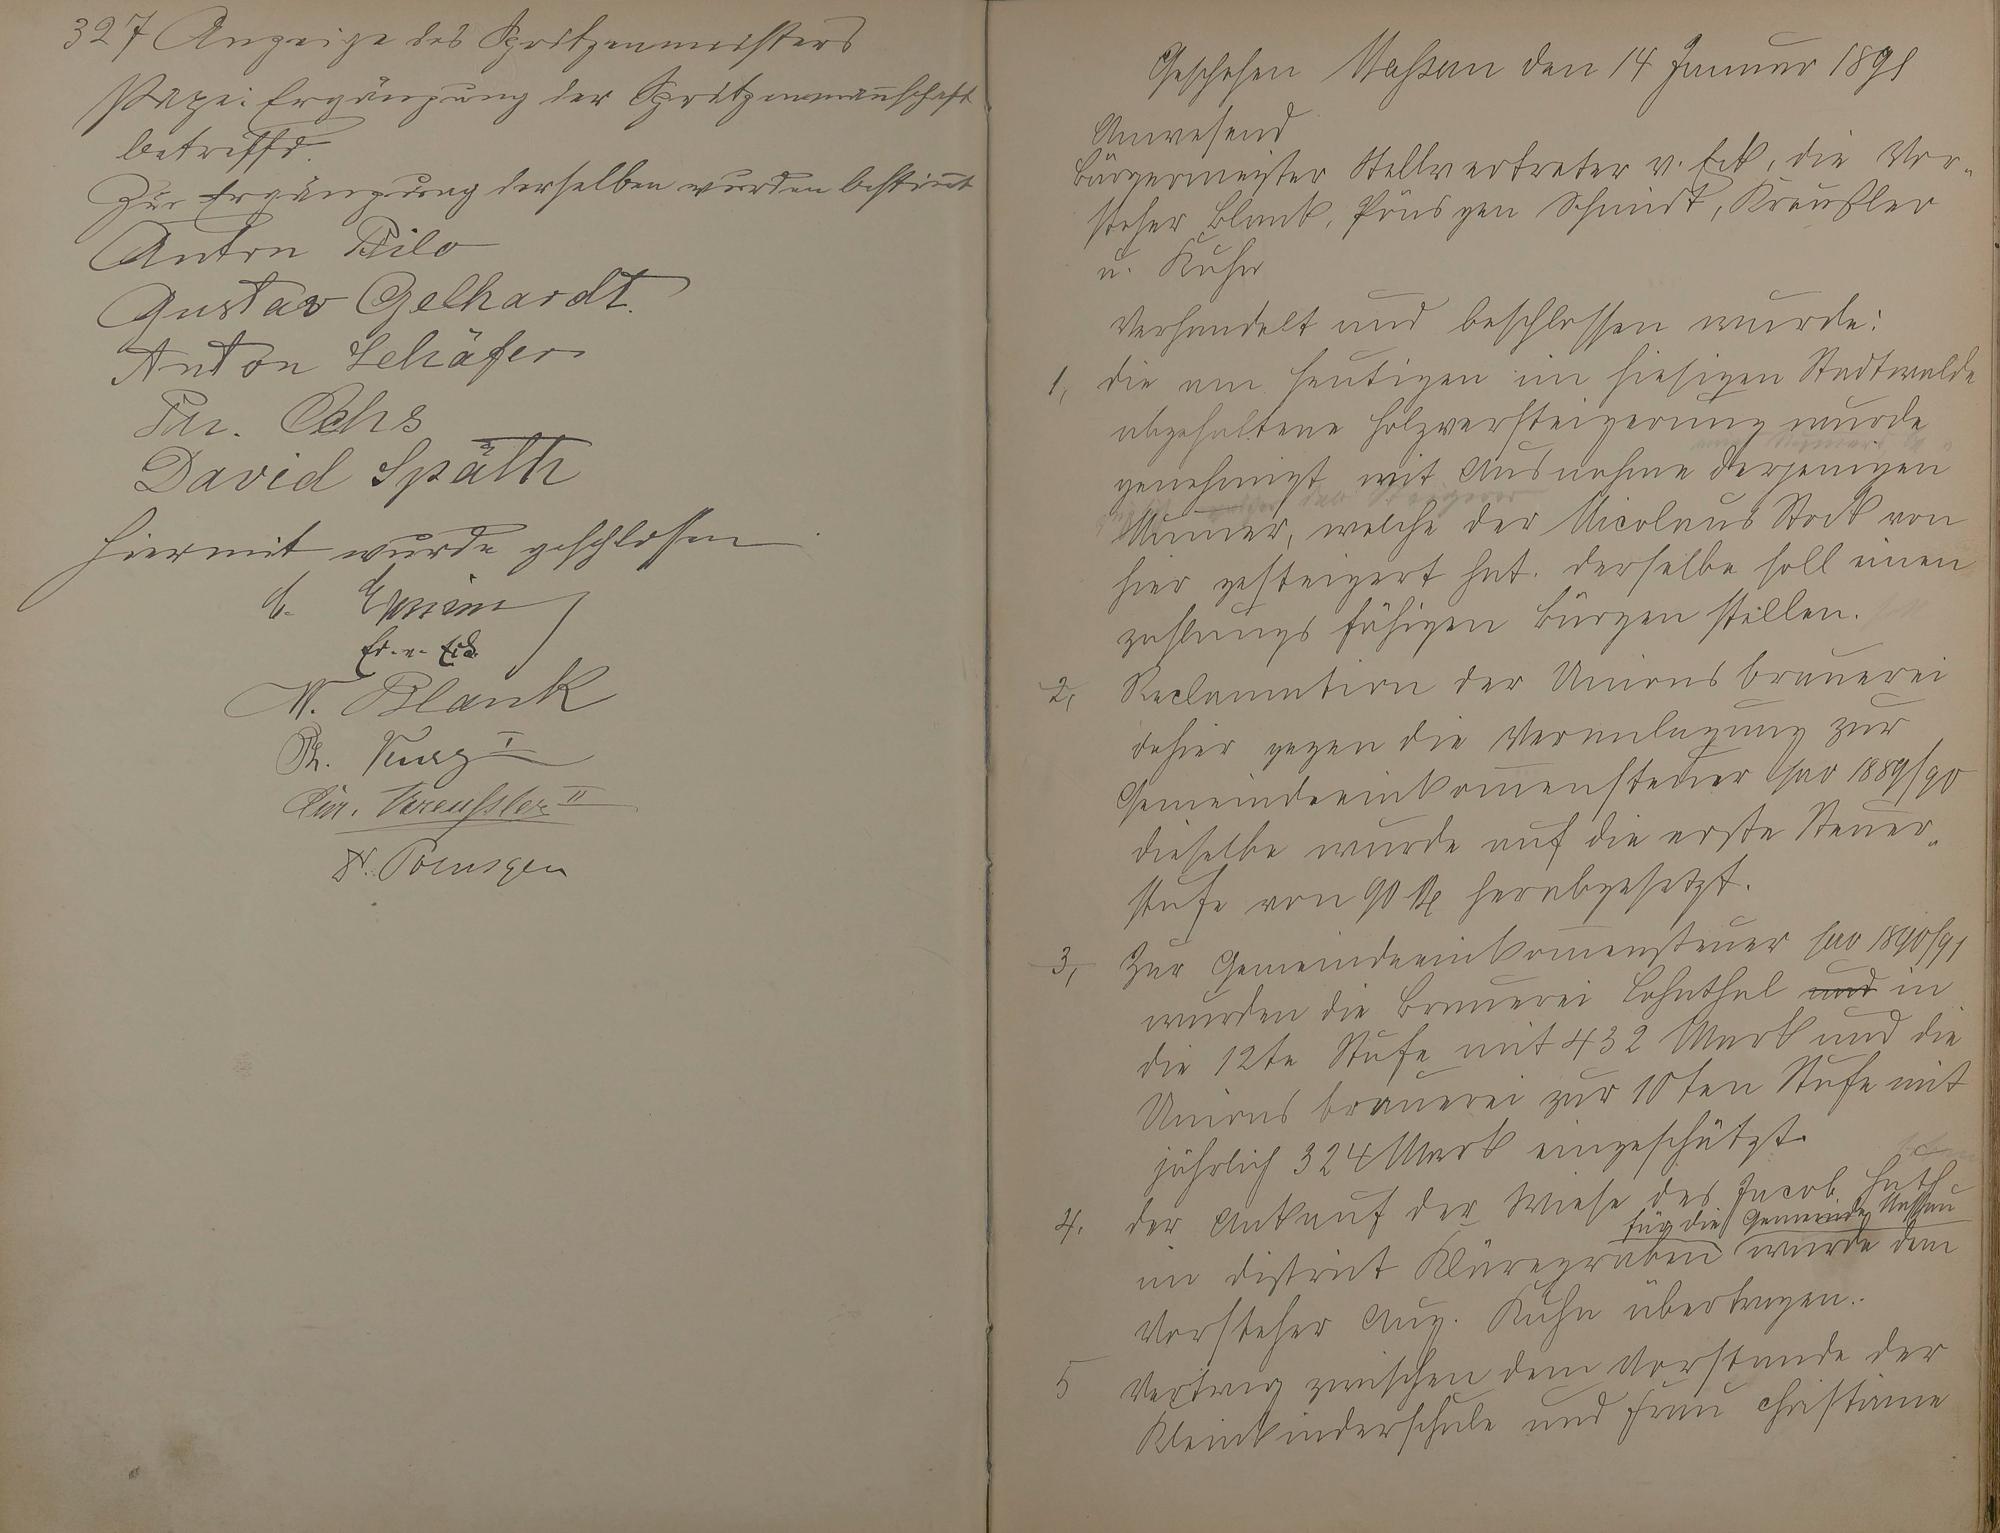 327 Anzeige des Spritzenmeisters
Ergänzung der Spritzenmannschaft
betreffd.
Zur Ergänzung derselben wurden bestimt
Anton Bilo
Gustav Gelhardt.
Anton Schäfer
Chr. Ochs
David Späth
Hiermit wurde geschlossen
Ed. v. Eck
W. Blank
Ph. Kurz I
Chr. Kreussler II
Poensgen
Geschehen Nassau den 14 Januar 1891
Anwesend
Bürgermeister Stellvertreter v. Eck, die Vor-
steher Blank, Pönsgen Schmidt, Kreußler
u. Kuhn
Verhandelt und beschlossen wurde:
1, die am heutigen im hiesigen Stadtwalde
abgehaltene Holzversteigerung wurde
genehmigt mit Ausnahme derjenigen
Numer, welche der Nicolaus Stock von
hier gesteigert hat. derselbe soll einen
zahlungs fähigen Bürgen stellen.
2, Reclamation der Unions brauerei
dahier gegen die Veranlagung zur
Gemeindeeinkom̅ensteuer pro 1889/90
dieselbe wurde auf die erste Steuer-
stufe von 90 M herabgesetzt.
3, Zur Gemeindeeinkom̅ensteuer pro 1890/91
wurden die Brauerei Lahnthal und in
die 12te Stufe mit 432 Mark und die
Unions brauerei zur 10ten Stufe mit
jährlich 324 Mark eingeschätzt.
4. der Ankauf der Wiese des Jacob Huth
für die Gemeinde Nassau
im district graben wurde dem
Vorsteher Aug. Kuhn übertragen.
5 Vertrag zwischen dem Vorstande der
Kleinkinderschule und Frau Christiane